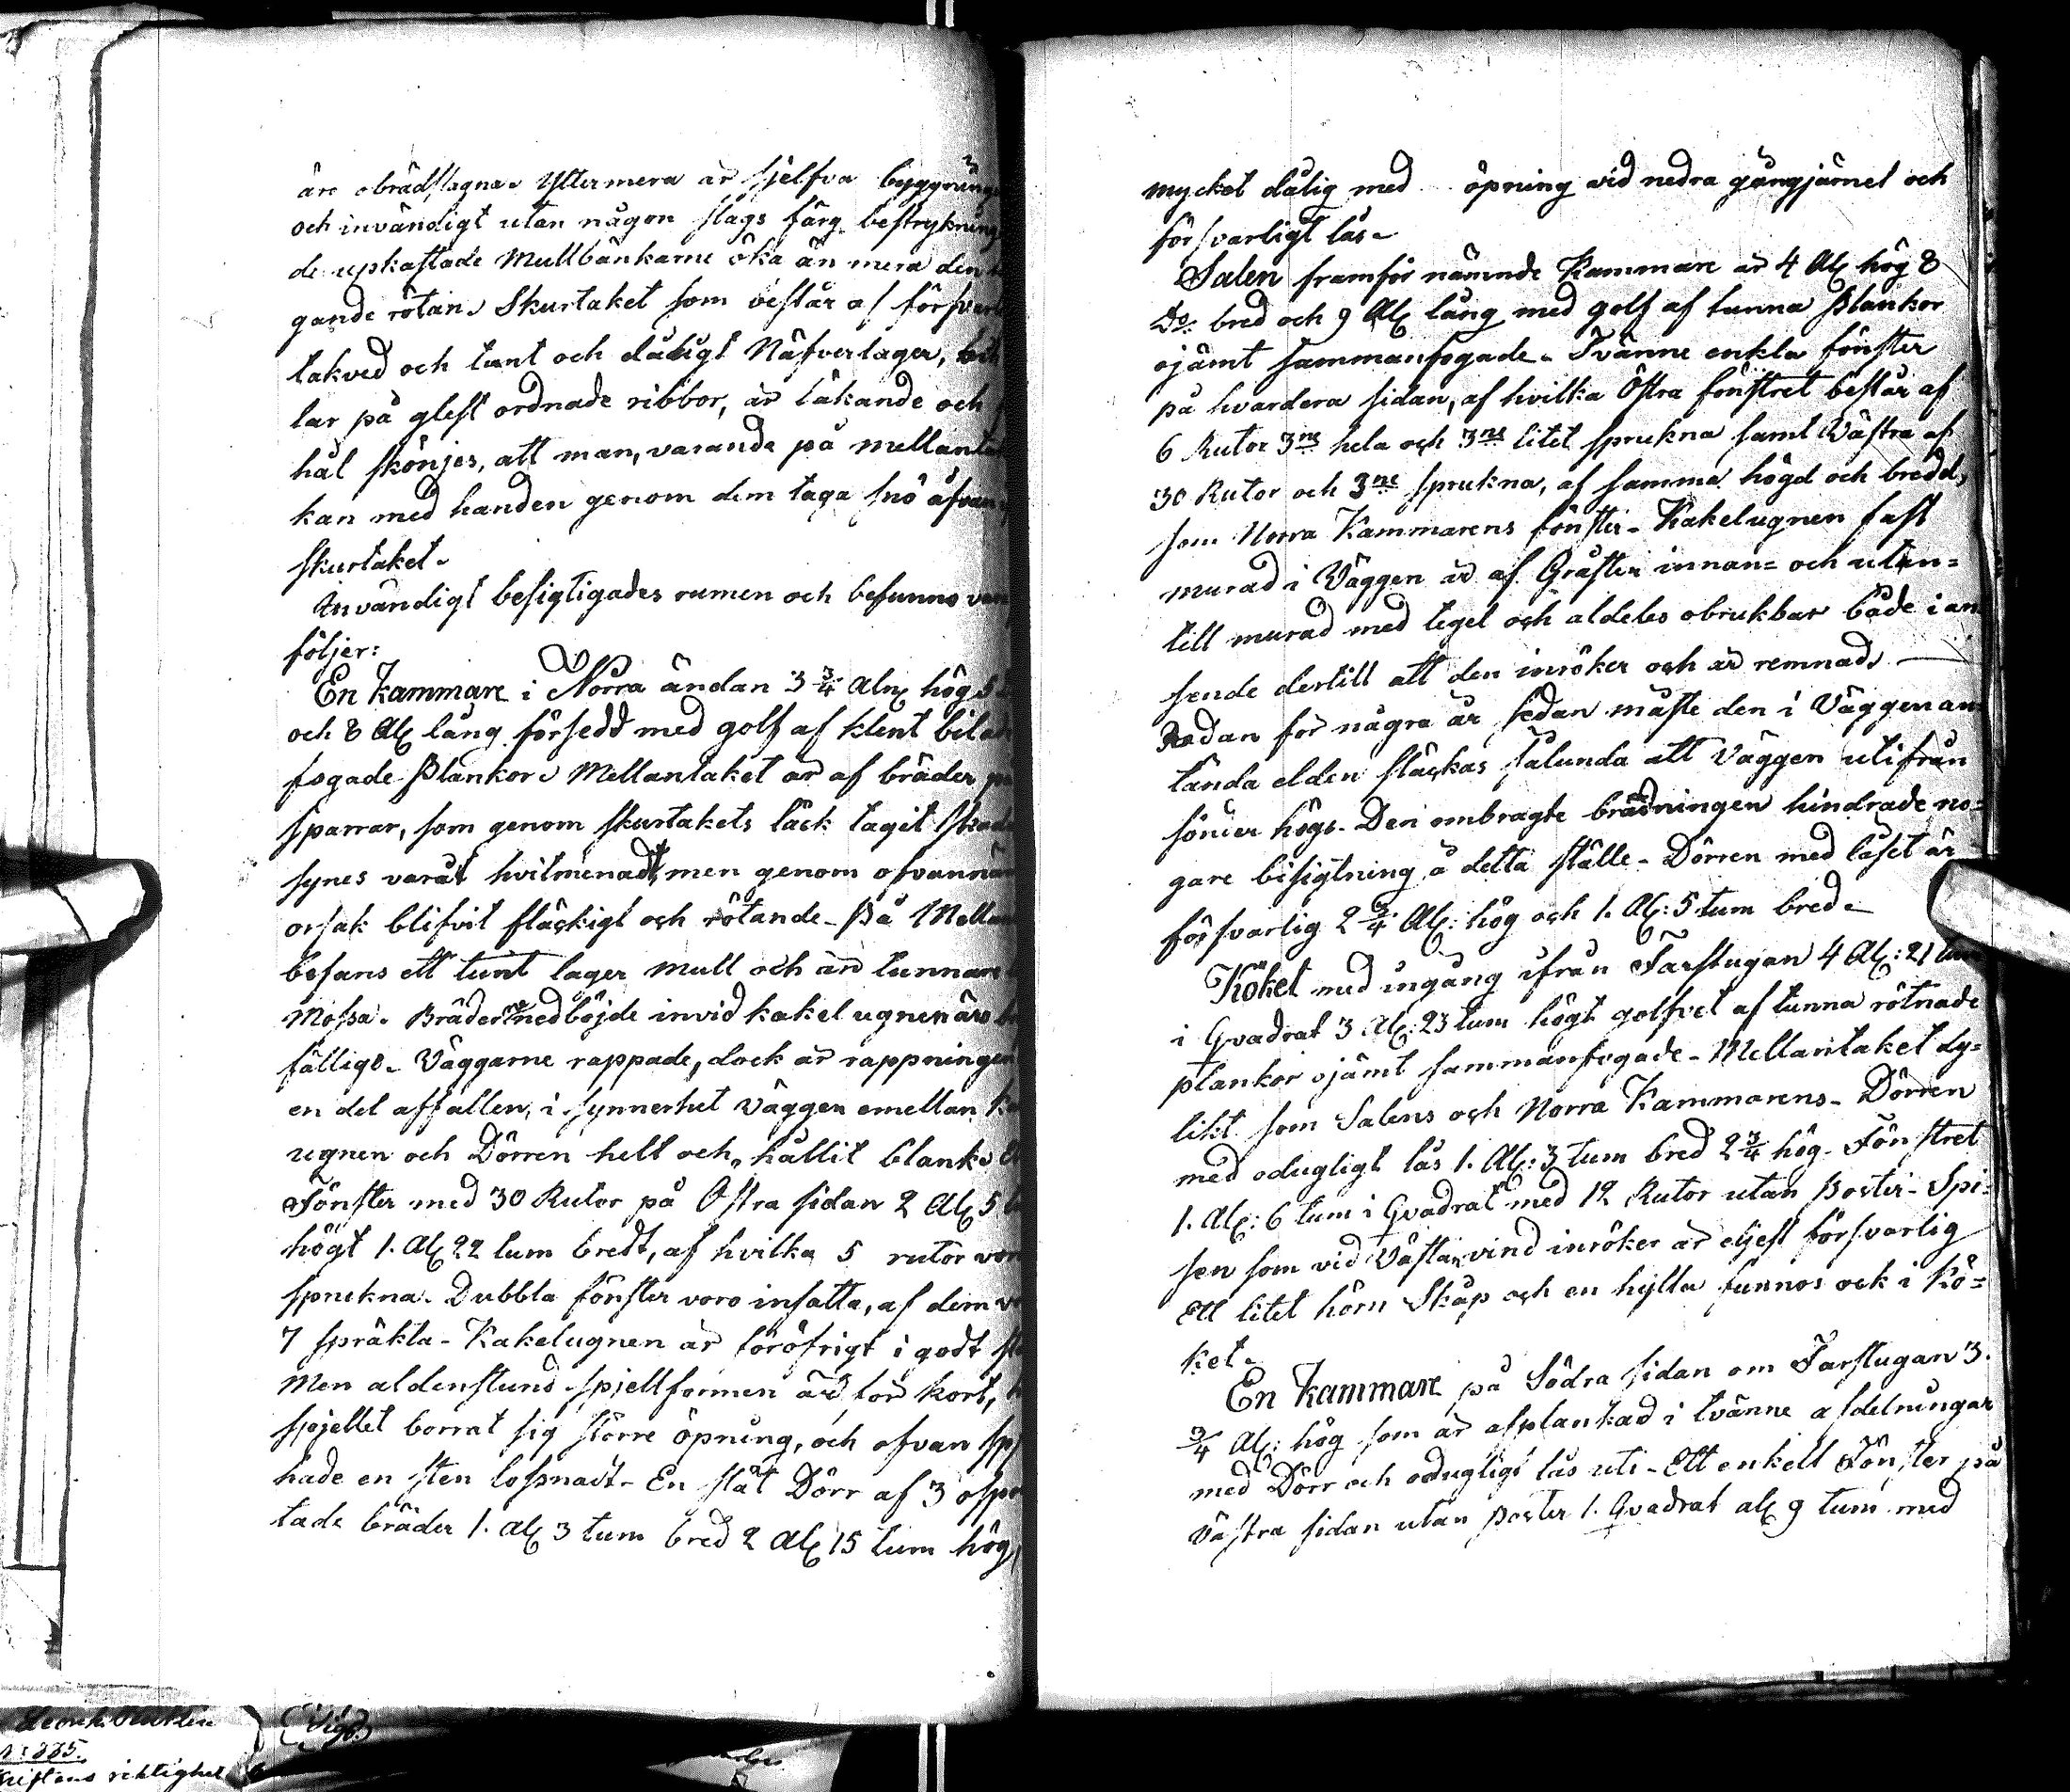 äro obrädslagna. Yttermera är sjelfva byggnings
och invändigt utan någon slags färg bestrykning
de upkastade Mullbänkarne öka än mera den
gande rötan. Skurtaket som består af försvarl
takved och tunt och dåligt Näfverlager,
lar på glest ordnade ribbor, är läkande och
hål skönjes, att man, varande på mellanta
kan med handen genom dem taga snö åfvan
skurtaket.
Invändigt besigtigades rumen och befunns
följer:
En kammare i Norra ändan 3 3/4 Aln hög
och 8 Al lång försedd med golf af klent
fogade Plankor. Mellantaket är af bräder
sparrar, som genom skurtakets läck tagit skada
synes varit hvitmenadt, men genom ofvannäm
orsak blifvit fläckigt och rötande. På Mellan
befans ett tunt lager mull och än tunnare
Mossa. Bräderne nedböjde invid kakelugnen äro
fällige. Väggarne rappade, dock är rappningen
en del affallen, i synnerhet Väggen emellan Ka
ugnen och Dörren helt och hållit blank.
Fönster med 30 Rutor på Östra sidan 2 Al 5
högt 1. Al 22 tum bredt, af hvilka 5 rutor voro
spruckna. Dubbla fönster voro insatta, af dem
7 spräkta. Kakelugnen är föröfrigt i godt
Men aldenstund spjellformen är för kort,
spjellet borrat sig större öpning, och ofvan
hade en sten lossnadt. En slät Dörr af 3
tade bräder 1. Al 3 tum bred 2 Al 15 tum hög,
mycket dålig med öpning vid nedra gångjärnet och
försvarligt lås.
Salen framför nämnde Kammare är 4 Al hög 8
Do bred och 9 Al lång med golf af tunna Plankor
ojämt sammanfogade. Tvänne enkla fönster
på hvardera sidan, af hvilka Östra fönstret består af
6 Rutor 3ne hela och 3ne litet sprukna samt Västra af
30 Rutor och 3ne sprukna, af samma högd och bredd,
som Norra Kammarens fönster. Kakelugnen fast
murad i Väggen är af Gråsten innan= och utan=
till murad med tegel och aldeles obrukbar både i an
seende dertill att den inröker och är remnad.
Redan för några år sedan måste den i Väggen an=
tända elden släckas sålunda att Väggen utifrån
sönder högs. Den ombragte brädningen hindrade no=
gare besigtning å detta ställe. Dörren med låset är
försvarlig 2 3/4 Al: hög och 1. Al: 5 tum bred.
Köket med ingång ifrån Farstugan 4 Al: 21 tum
i Qvadrat 3 Al: 23 tum högt golfvet af tunna rötnade
plankor ojämt sammanfogade. Mellantaket dy=
likt som Salens och Norra Kammarens. Dörren
med odugligt lås 1. Al: 3 tum bred 2 3/4 hög. Fönstret
1. Al: 6 tum i Qvadrat med 12 Rutor utan Poster. Spi=
sen som vid Västan vind inröker är eljest försvarlig
Ett litet hörn Skåp och en hylla funnos ock i Kö=
ket.
En kammare på Södra sidan om Farstugan 3.
3/4 Al: hög som är afplankad i tvänne afdelningar
med Dörr och odugligt lås uti. Ett enkelt Fönster på
Västra sidan utan Poster 1. Qvadrat al 9 tum med
riktighet